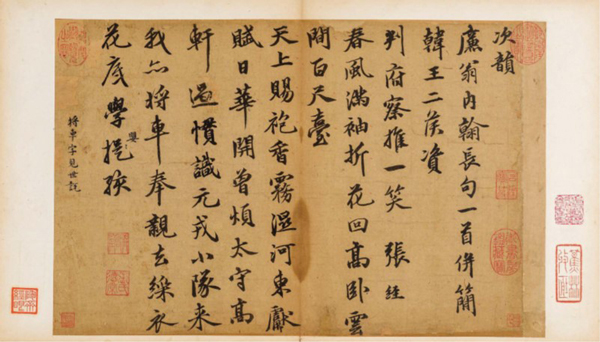 次韻
廉翁内翰長句一首併簡
韓王二侯資
判府察推一笑 張經
春風滿袖折花回高卧雲
間百尺臺
天上賜袍香霧濕河東獻
賦日華開曾煩太守高
軒過慣識元戎小隊来
我亦将車奉親去綵衣
嬰
花底學提孩
将車字見世説